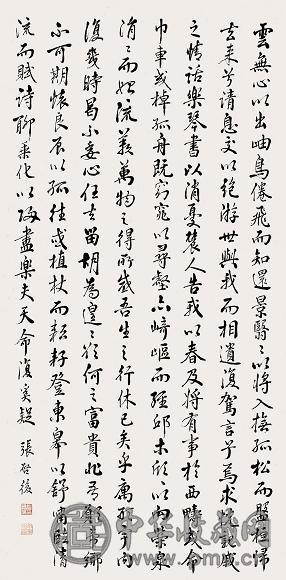 雲無心以出岫鳥倦飛而知還景翳〻以將入撫孤松而盤桓歸
去来兮請息交以絕游世與我而相遺復駕言兮焉求悅親戚
之情話樂琴書以消憂農人告我以春及將有事於西疇或命
巾車或棹孤舟既窈窕以尋壑亦崎嶇而經邱木欣〻以向榮泉
涓〻而始流羨萬物之得時感吾生之行休已矣乎寓形宇内
復幾時曷不委心任去留胡為遑〻欲何之富貴非吾願帝鄉
不可期懷良辰以孤往或植杖而耘耔登東皋以舒嘯臨清
流而賦詩聊乘化以歸盡樂夫天命復奚疑 張啓後
中华收藏网